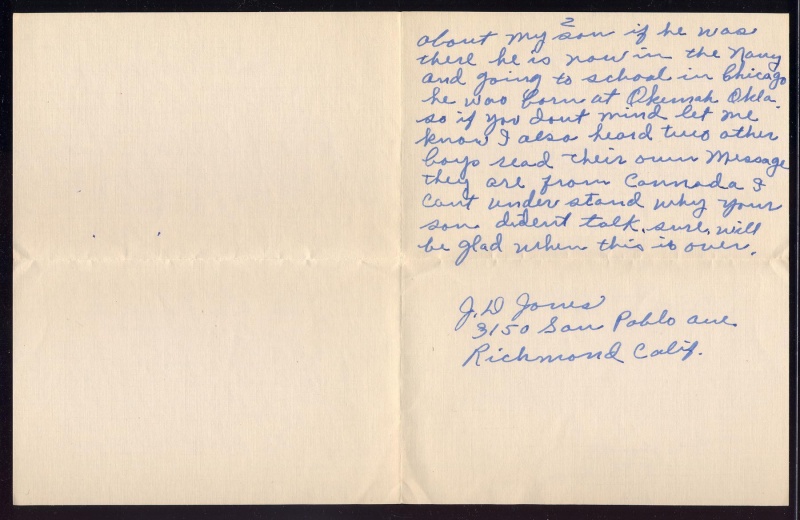 2
about my son if he was
there he is now in the Navy
and going to school in Chicago
he was born at Okemah Okla.
so if you dont mind let me
know I also heard two other
boys read their own Message
they are from Cannada I
cant understand why your
son dident talk. sure will
be glad when this is over.
J. D Jones
3150 San Pablo ave
Richmond Calif.